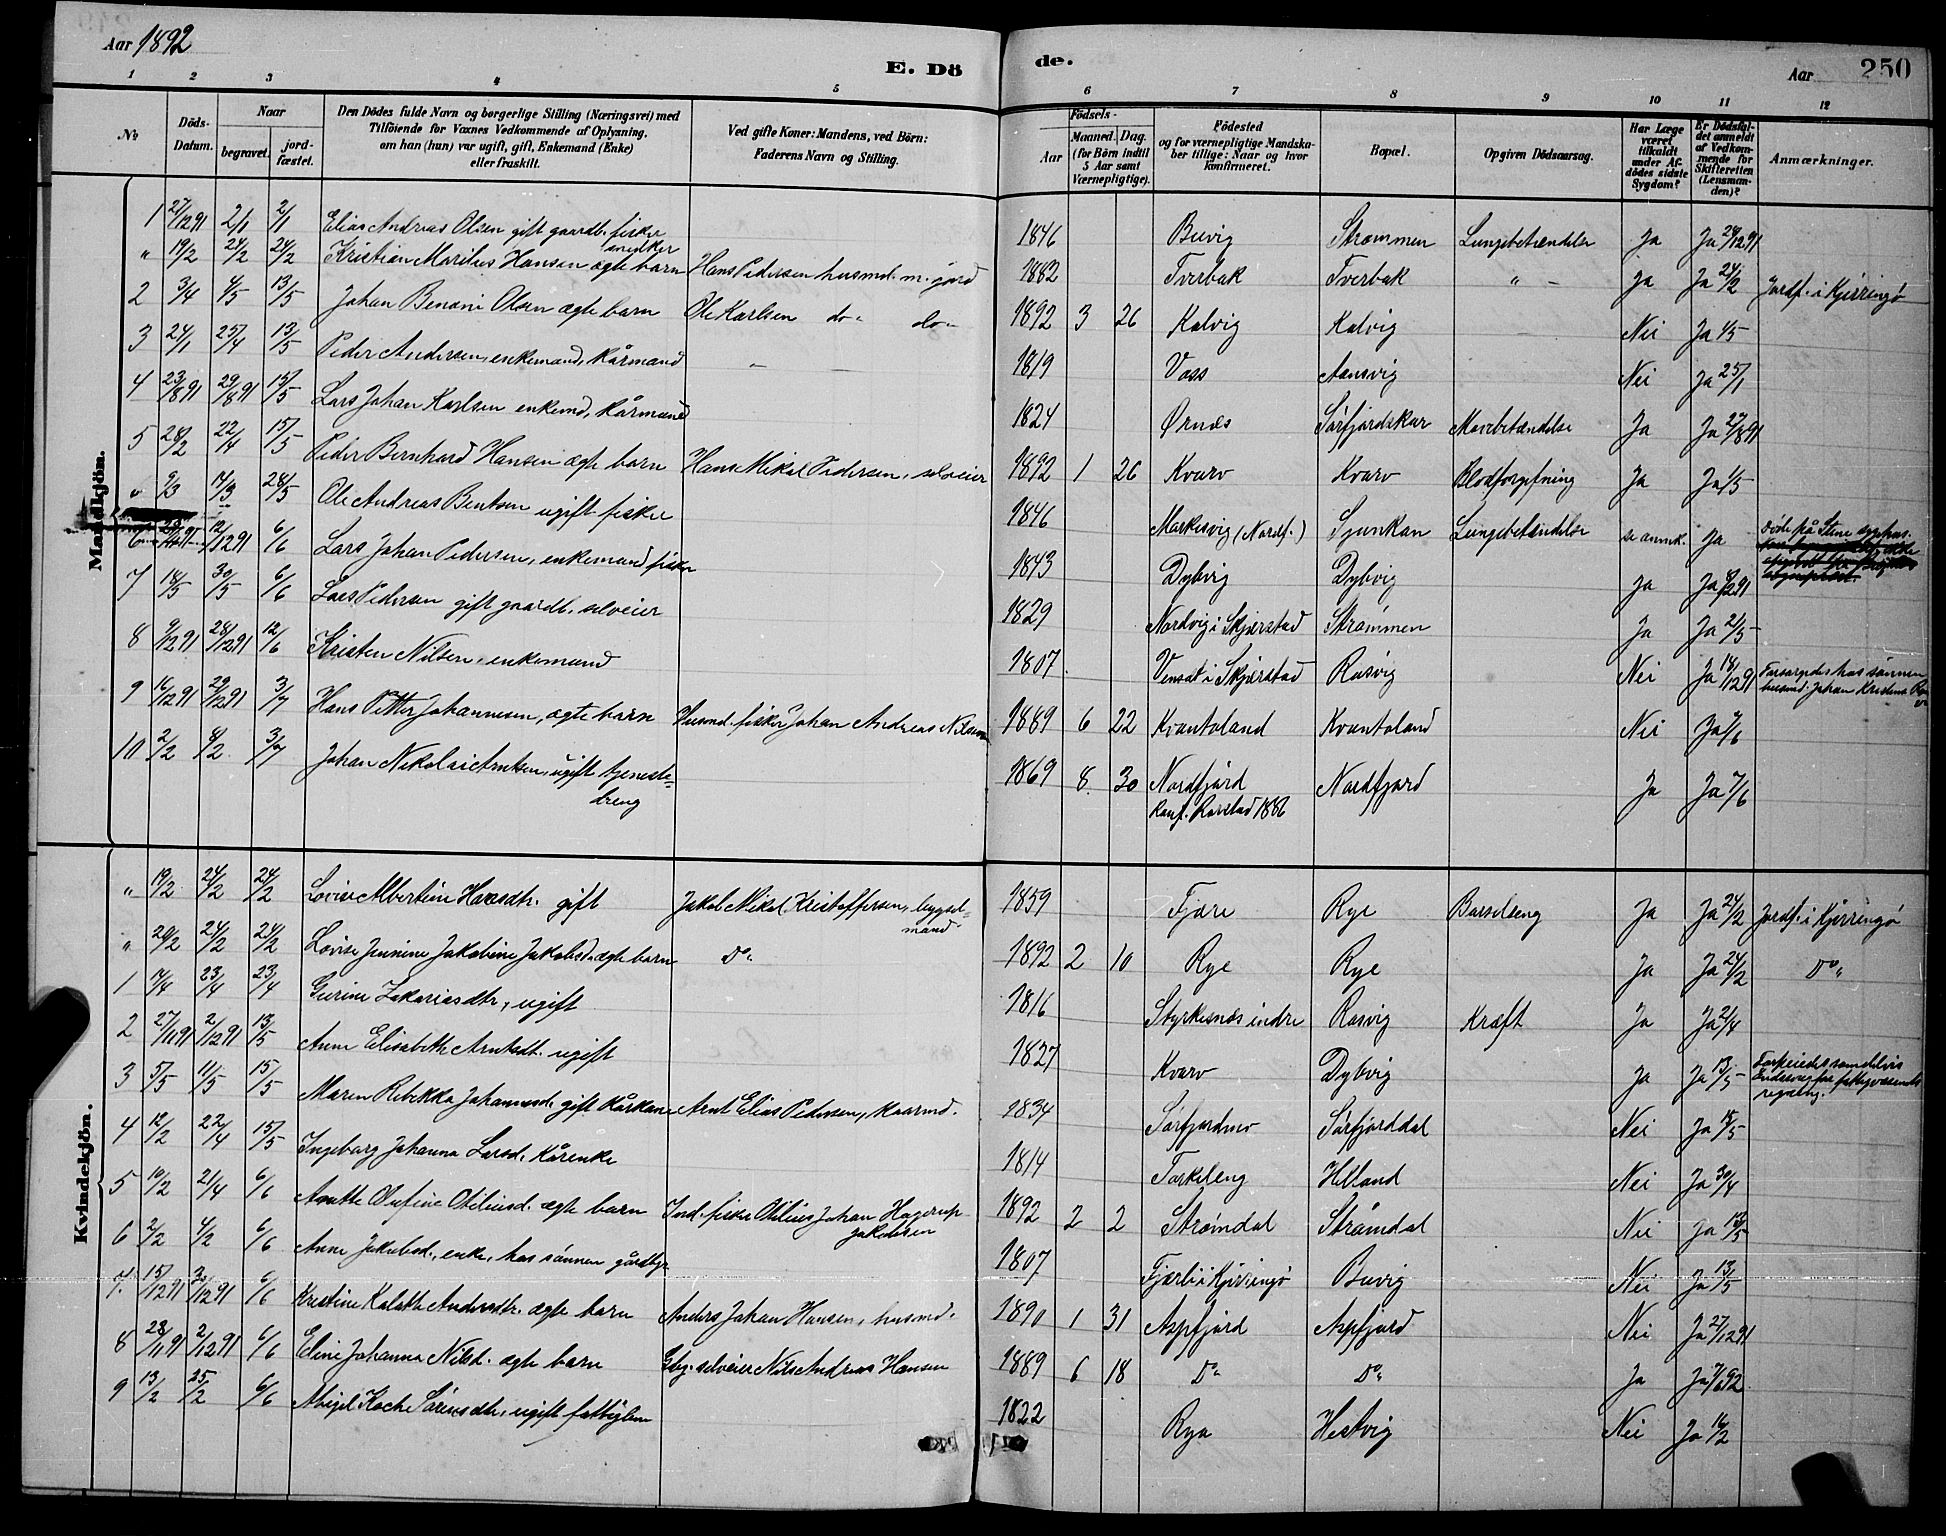 Aar 1892
E. Dö
de.
Aar 250
1 2 3 4 5 6 7 8 9 10 11 12
No
Döds-Datum.
Naar
begravet.
jord-fæstet.
Den Dödes fulde Navn og borgerlige Stilling (Næringsvei) med
Tilföiende for Voxnes Vedkommende af Oplysning,
om han (hun) var ugift, gift, Enkemand (Enke)
eller fraskilt.
Ved gifte Koner: Mandens, ved Börn:
Faderens Navn og Stilling.
Födsels-
Aar
Maaned. Dag.
(for Börn indtil
5 Aar samt
Værnepligtige).
Födested
og for værnepligtige Mandska-
ber tillige: Naar og hvor
konfirmeret.
Bopæl.
Opgiven Dödsaarsag.
Har Læge
været
tilkaldt
under Af-
dödes sidste
Sygdom?
Er Dödsfal-
det anmeldt
af Vedkom-
mende for
Skifteretten
(Lensman-
den)?
Anmærkninger.
Mandkjön.
1 27/12 91 2/1 2/1 Elias Andreas Olsen gift gaardb. fisker snedker 1846 Buvig Strømmen Lungebetændelse Ja Ja 28/12 91
" 19/2 24/2 24/2 Kristian Marelius Hansen ægte barn Hans Pedersen husmd. m. jord 1882 Tverbak Tverbak " Ja Ja 24/2 Jordf. i Kjerringø
2 3/4 4/5 13/5 Johan Benoni Olsen ægte barn Ole Karlsen do " do " 1892 3 26 Kalvig Kalvig Nei Ja 4/5
3 24/1 25/4 13/5 Peder Andersen, enkemand, kårmand " 1819 Voss Aansvig Nei Ja 25/1
4 23/8 91 29/8 91 15/5 Lars Johan Karlsen enkemd, kårmand 1824 Ørnæs Sørfjordskar Mavebetændelse Ja Ja 27/8 91
5 28/2 22/4 15/5 Peder Bernhard Hansen ægte barn Hans Mikal Pedersen, selveier 1892 1 26 Kvarv Kvarv Blodforgiftning Ja Ja 1/5
" 9/3 14/3 28/5 Ole Andreas Bentsen ugift fisker 1846 Markesvig (Nordf.) Sjunkan Lungebetændelse se anmk. Ja Døde på Stene sygehus.
6 12/12 91 6/6 Lars Johan Pedersen, enkemand, fisker 1843 Dybvig Dybvig Ja Ja 12 91
7 18/5 30/5 6/6 Lars Pedersen gift gaardb. selveier 1829 Nordvig i Skjerstad Strømmen Ja Ja 21/5
8 9/12 91 28/12 91 12/6 Kristen Nilsen, enkemand 1807 Venset i Skjerstad Rosvig Nei Ja 18/12 91 Forsørgedes hos sønnen husmd. Johan Kristensen
9 16/12 91 29/12 91 3/7 Hans Petter Johannesen, ægte barn Husmd. fisker Johan Andreas Nilsen 1889 6 22 Kvantoland Kvantoland Nei Ja 7/6
10 2/2 8/2 3/7 Johan Nikolai Arntsen, ugift tjeneste-
dreng 1869 8 30 Nordfjord Nordfjord Ja Ja 7/6
Konf. Rørstad 1886
Kvindekjön.
" 19/2 24/2 24/2 Lovise Albertine Hansdtr. gift Jakob Nikol. Kristoffersen, bygsel-
mand. 1859 Fjære Rye Barselseng Ja Ja 24/2 Jordf. i Kjerringø
" 20/2 24/2 24/2 Lovise Jensine Jakobine Jakobsd. ægte barn Do " 1892 2 10 Rye Rye Ja Ja 24/2 Do "
1 17/4 23/4 23/4 Gurine Zakariasdtr, ugift 1816 Styrkesnæs indre Rosvig Kræft Ja Ja 21/4
2 27/11 91 2/12 91 13/5 Anne Elisabeth Arntsdt. ugift 1827 Kvarv Dybvig Ja Ja 13/5
3 5/5 11/5 15/5 Maren Rebekka Johannesd. gift kårkone Arnt Elias Pedersen, kaarmd. 1834 Sørfjordmo Sørfjorddal Nei Ja 15/5
4 12/2 22/4 15/5 Ingeborg Johanna Larsd. kårenke 1814 Torkileng Helland Nei Ja 30/4
5 10/2 21/4 6/6 Anette Olufine Otiliusd. ægte barn Ind. fisker Otilius Johan Hagerup
Jakobsen 1892 2 2 Strømdal Strømdal Nei Ja 13/5
6 2/2 4/2 6/6 Anne Jakobsd., enke, hos sønnen gårdbr. 1807 Fjære i Kjerringø Buvig Nei Ja 13/5
7. 15/12 91 30/12 91 6/6 Kristine Kolette Andersdtr. ægte barn Anders Johan Hansen, husmd. 1890 1 31 Aspfjord Aspfjord Nei Ja 27/12 91
8 28/11 91 2/12 91 6/6 Eline Johanna Nilsd. ægte barn Gbr. selveier Nils Andreas Hansen 1889 6 18 Do " Do " Ja Ja 7/6 92
9 13/2 25/2 6/6 Abigel Koch Sørensdtr, ugift fattiglem 1822 Rya Hestvig Nei Ja 16/2